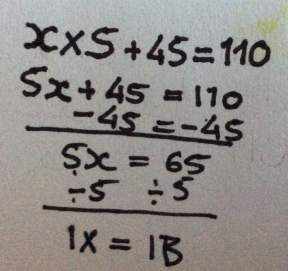 x×5+45=110
5x+45=110
-45=-45
5x=65
÷5 ÷5
1x=13